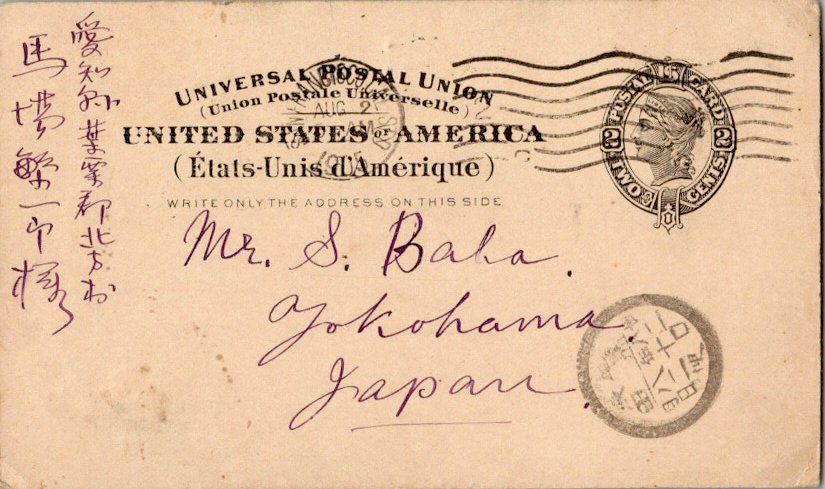 愛知県葉栗郡北方村
馬場繁一郎様
UNIVERSAL POSTAL UNION
(Union Postale Universelle)
UNITED STATES OF AMERICA
(États-Unis d'Amérique)
WRITE ONLY THE ADDRESS ON THIS SIDE
POSTAL CARD
2 TWO CENTS 2
AUG 2
AM
Mr. S. Baba.
Yokohama
Japan.